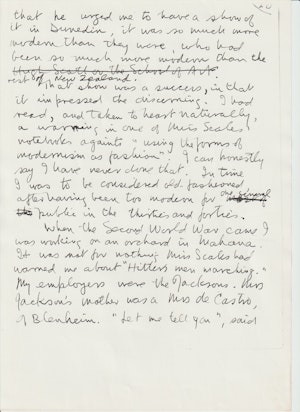 that he urged me to have a show of
it in Dunedin, it was so much more
modern than they were, who had
been so much more modern than the
Hugh Scott or the School of Art
rest of New Zealand.
That show was a success, in that
it impressed the discerning. I had
read, and taken to heart naturally,
a warning in one of Miss Scales
notebooks against "using the forms of
modernism as fashion". I can honestly
say I have never done that. In time
I was to be considered old fashioned
after having been too modern for the general
public in the thirties and forties.
When the Second World War came I
was working on an orchard in Mahana.
It was not for nothing Miss Scales had
warned me about "Hitlers men marching."
My employers were the Jacksons. Mrs
Jackson's mother was a Mrs de Castro,
of Blenheim. "Let me tell you", said